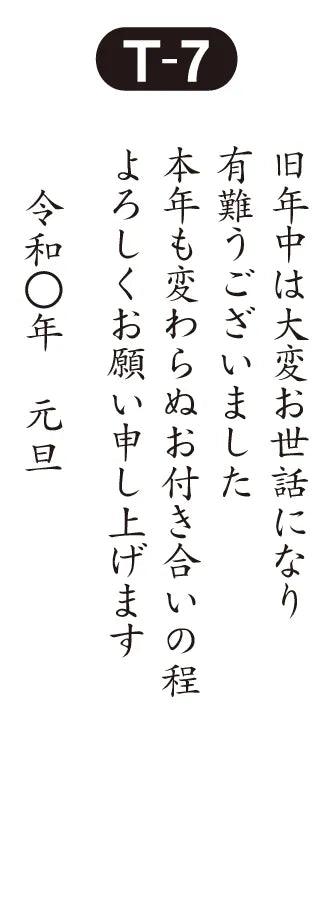 T-7
旧年中は大変お世話になり
有難うございました
本年も変わらぬお付き合いの程
よろしくお願い申し上げます
令和〇年　元旦